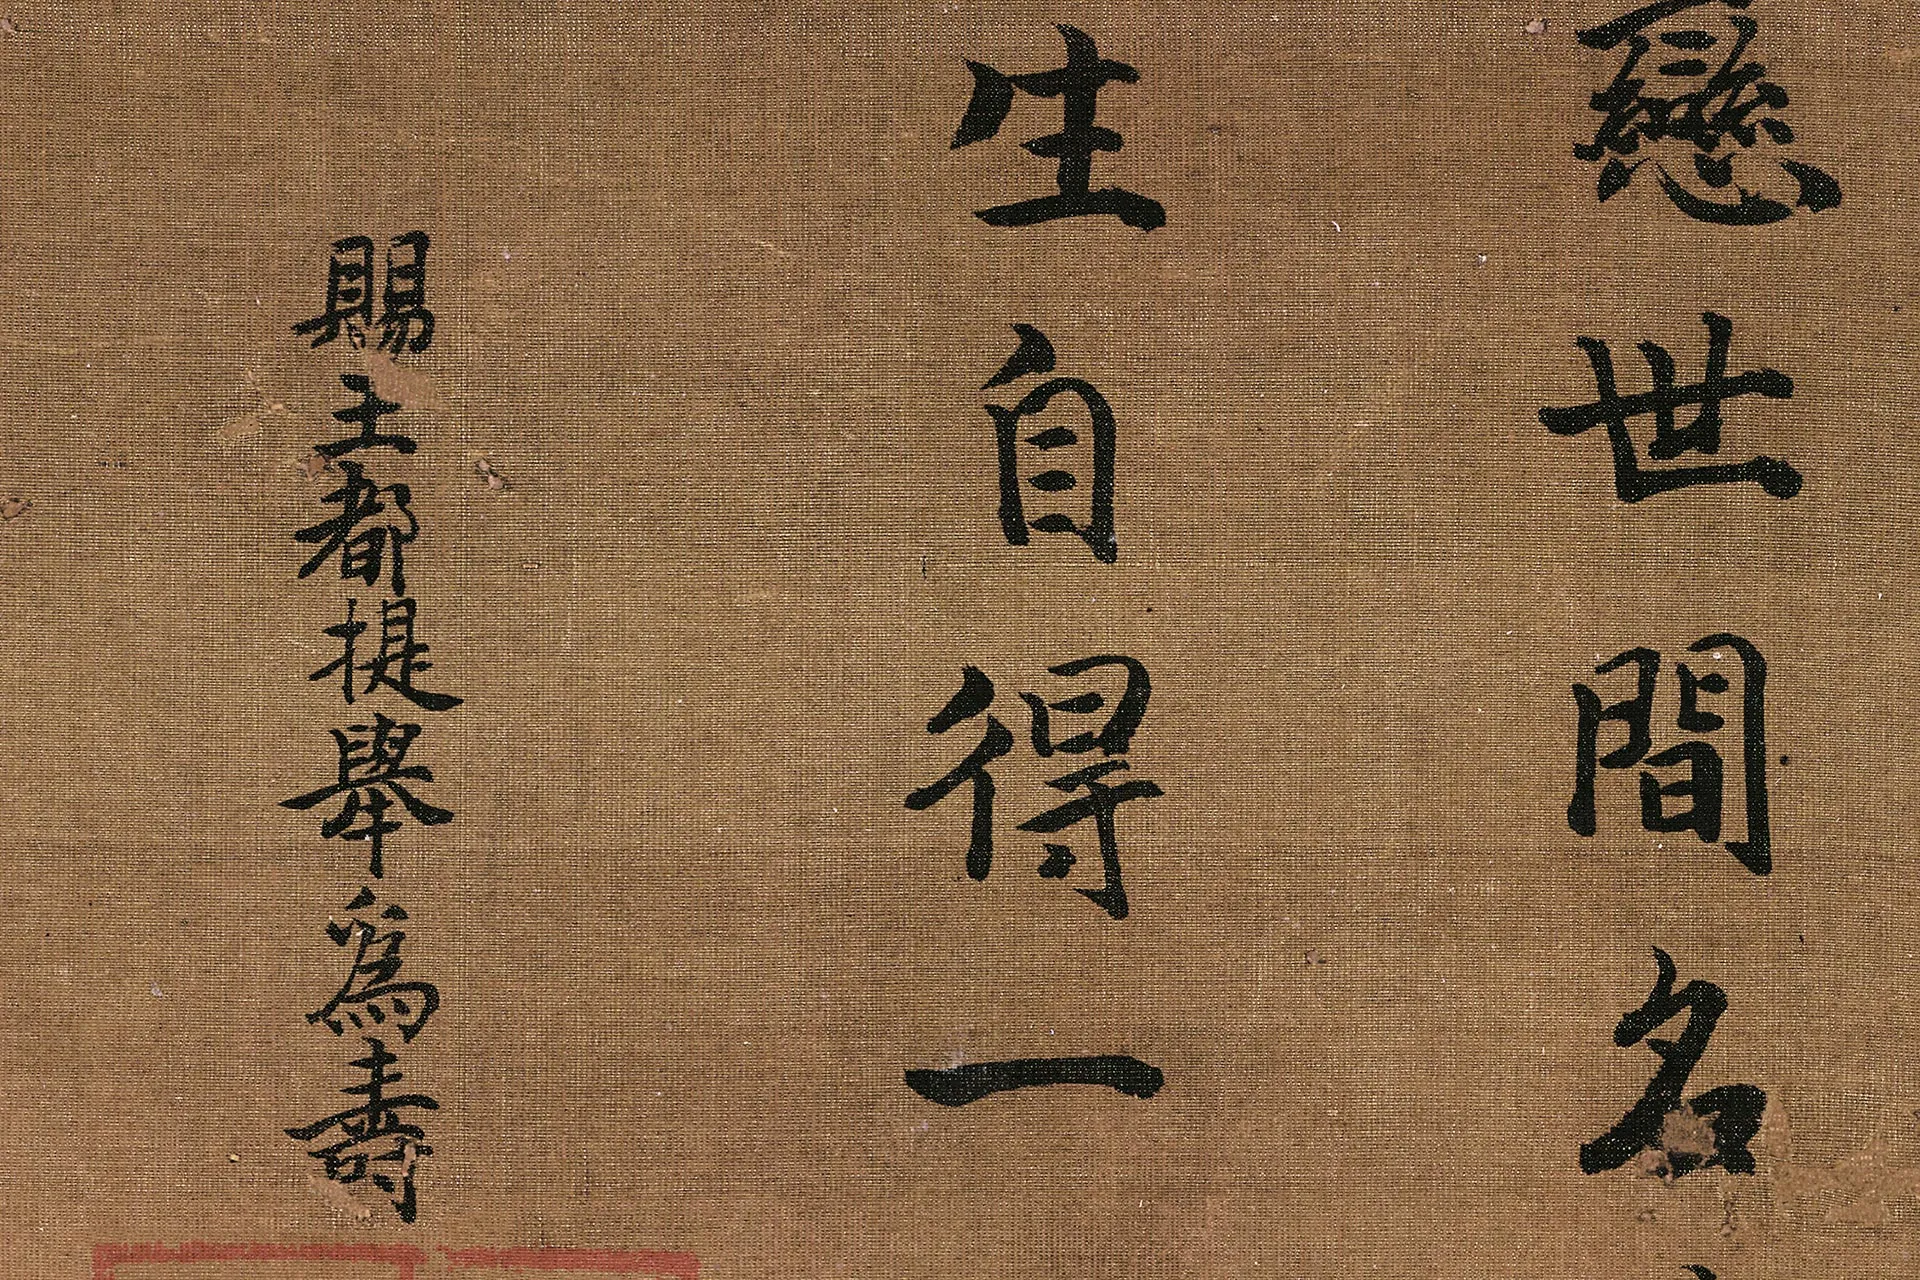 戀世間名
生自得一
賜王都提舉為壽